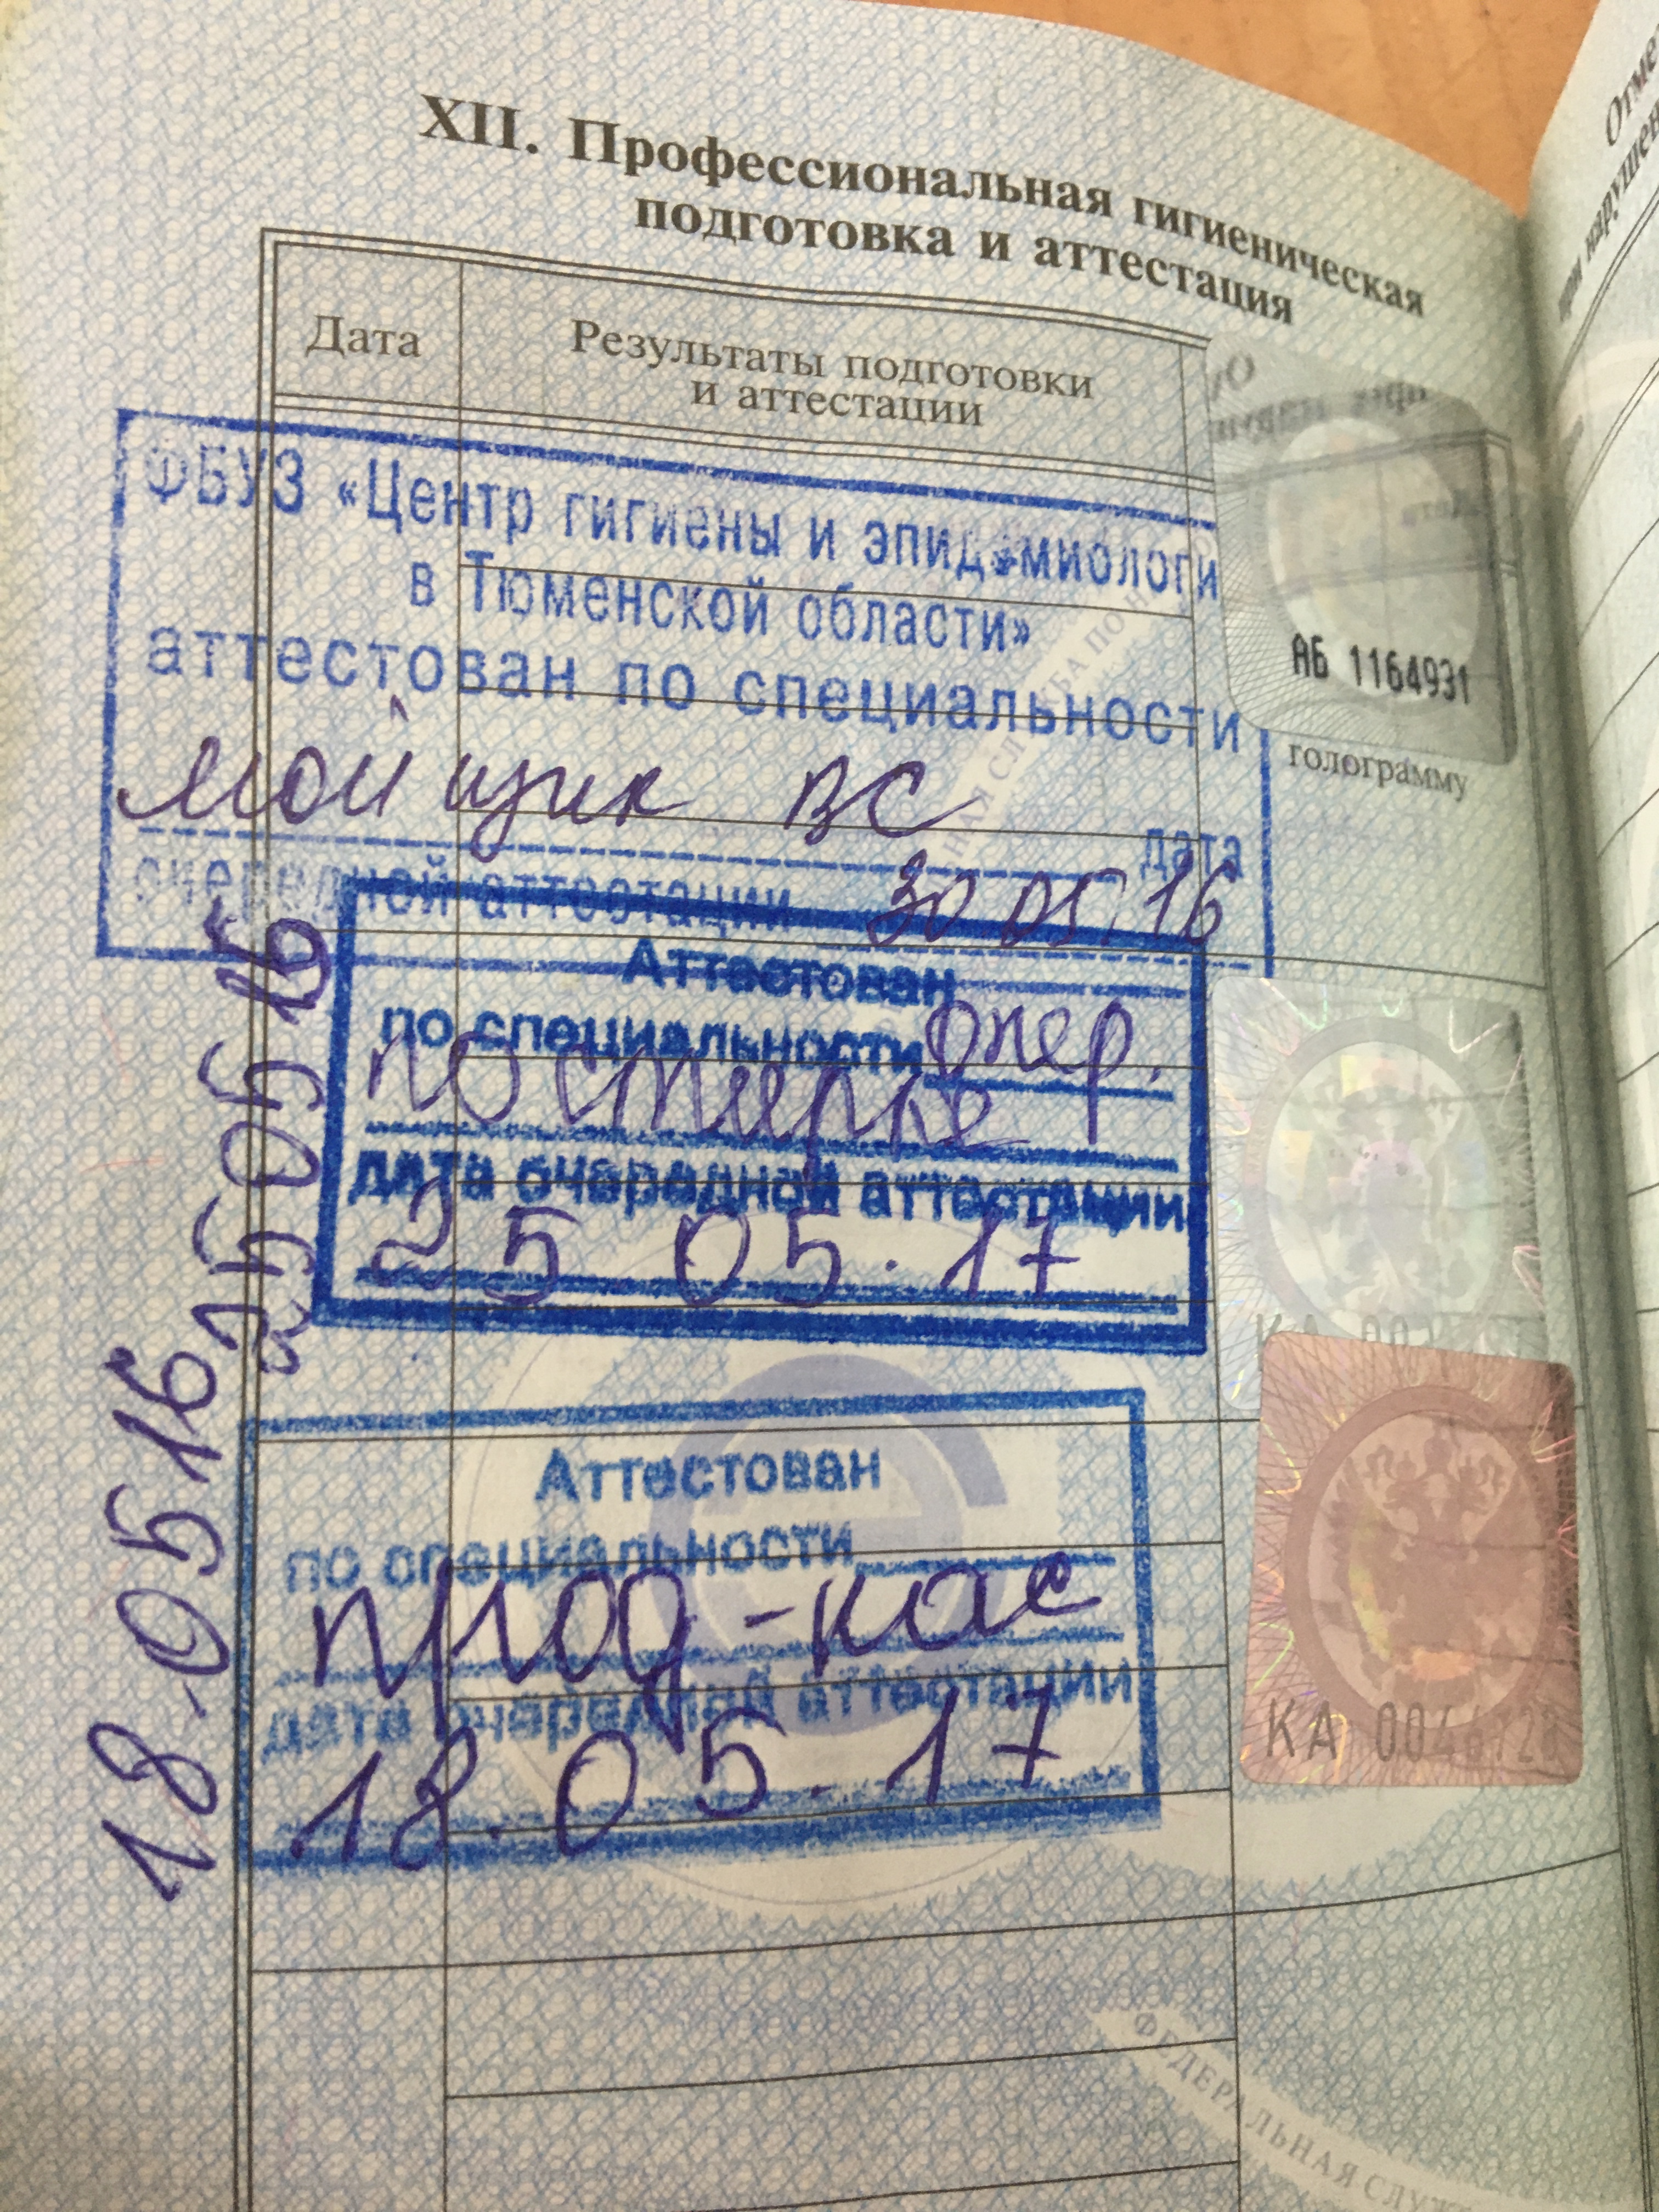 XII. Профессиональная гигиеническая
подготовка и аттестация
Дата
Результаты подготовки
и аттестации
ФБУЗ «Центр гигиены и эпидемиологи
в Тюменской области»
аттестован по специальности
мойщик ВС
дата
очередной аттестации 30.05.16
АБ 1164931
голограмму
Аттестован
по специальности опер.
по стирке
дата очередной аттестации
25 05.17
25 05 16
Аттестован
по специальности
прод-кас
дата очередной аттестации
18.05.17
18.05 16
КА
КА
ФЕДЕРАЛЬНАЯ СЛУ
при нарушен